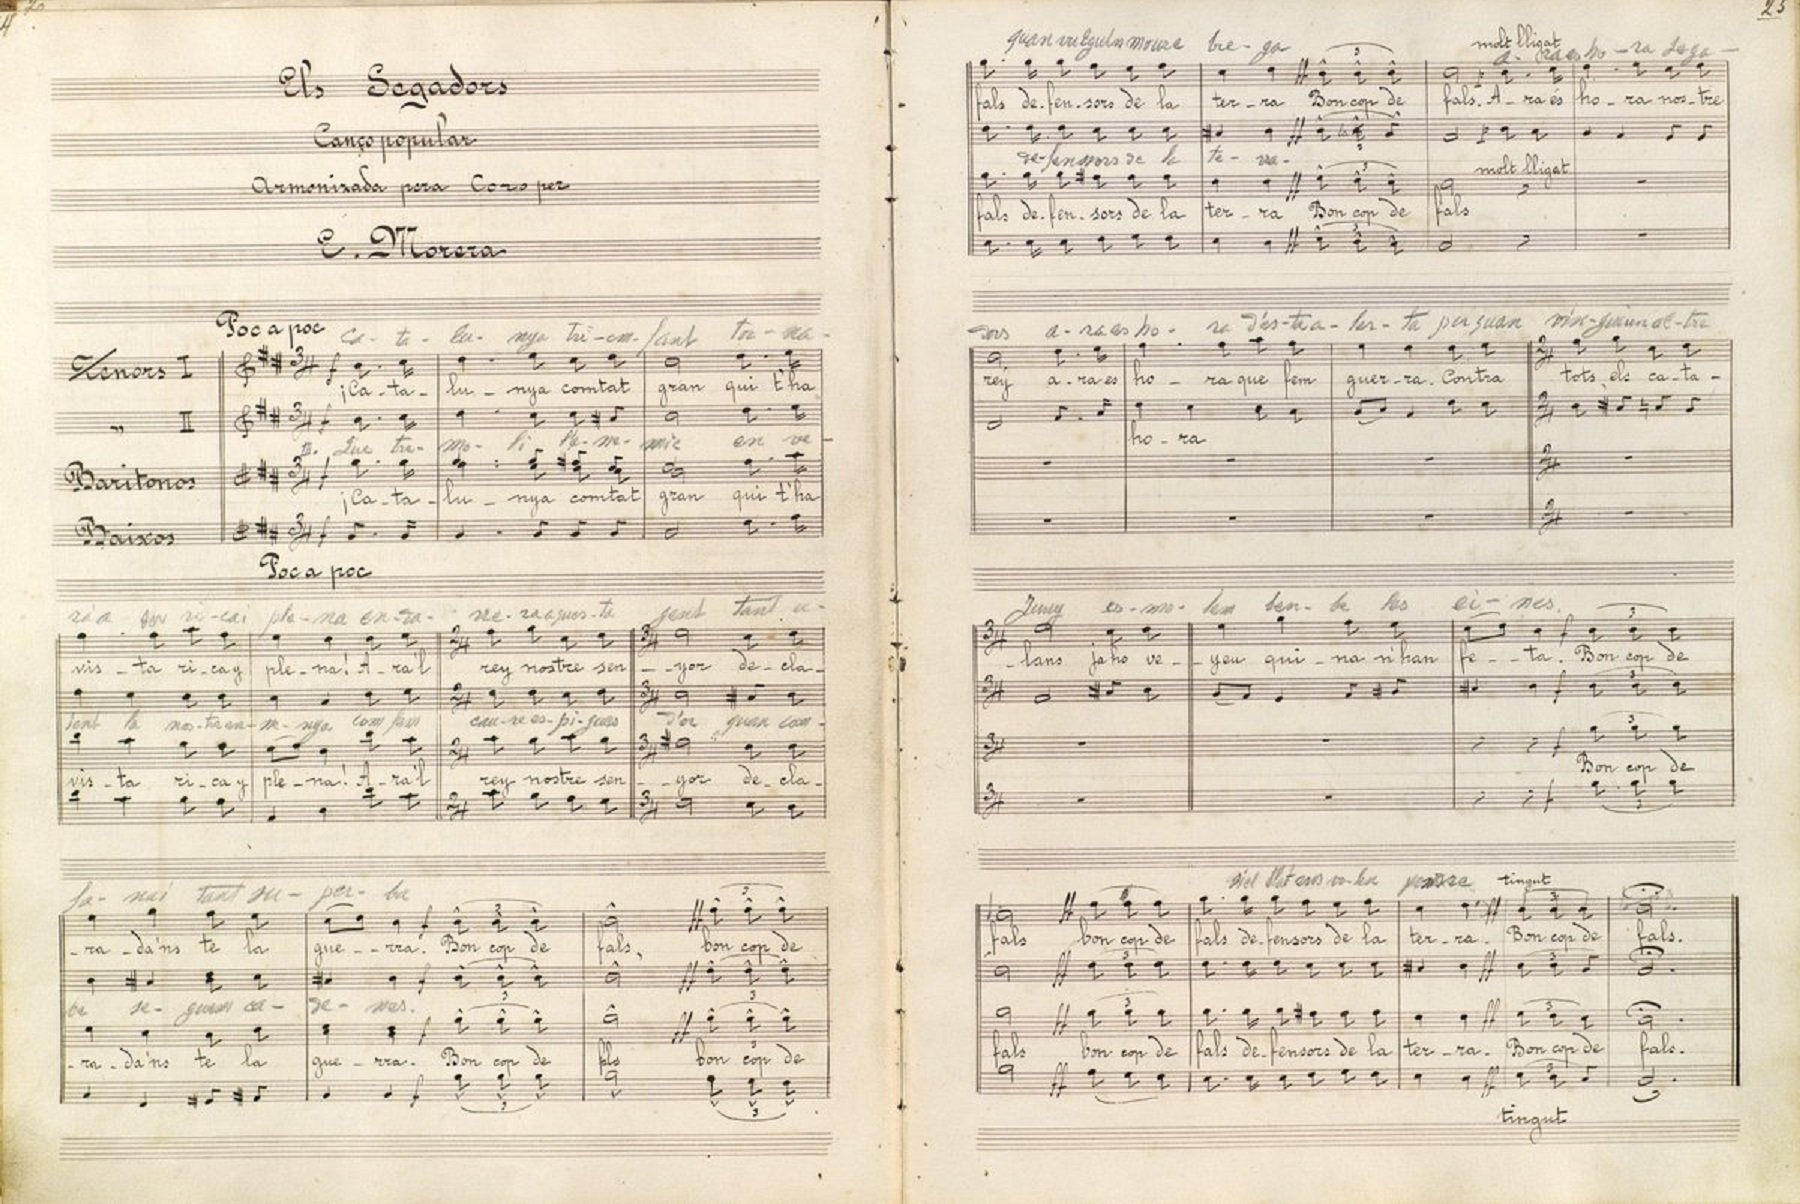 Els Segadors
Cançó popular
Armonisada pera Coro per
E. Morera
Poc a poc
Ca - ta - lu - nya tri - om - fant tor - na -
Tenors I
¡Ca - ta - lu - nya comtat gran qui t'ha
„ II
Que tre - mo - li l'e - ne - mic en ve -
Baritonos
¡Ca - ta - lu - nya comtat gran qui t'ha
Baixos
Poc a poc
rà a ser ri - ca i ple - na en - ra - re - ra aques - ta gent tant u -
vis - ta ri - ca y ple - na! A - ra'l rey nostre sen - - yor de - cla -
ient la nos - tra en - se - nya com fem cau - re es - pi - gues d'or quan con -
vis - ta ri - ca y ple - na! A - ra'l rey nostre sen - - yor de - cla -
fa - na i tant su - per - ba
- ra - da'ns te la gue - - rra! Bon cop de fals, bon cop de
ve se - guem ca - de - nes.
- ra - da'ns te la gue - rra. Bon cop de fals bon cop de
25
quan vulguin moure bre - ga
molt lligat
A - ra es ho - ra sega -
fals de - fen - sors de la ter - ra Bon cop de fals. A - ra és ho - ra nos - tre
de - fensors de la te - rra -
molt lligat
fals de - fen - sors de la ter - ra Bon cop de fals
dors a - ra es ho - ra d'es - ta a - ler - ta per quan vin - guin al - tre
rey a - ra es ho - ra que fem guer - ra. Contra tots els ca - ta -
ho - ra
Juny es - mo - lem ben - be les ei - nes.
- lans ja ho ve - - yeu qui - na n'han fe - - ta. Bon cop de
Bon cop de
tingut
fals bon cop de fals de - fensors de la ter - ra. Bon cop de fals.
fals bon cop de fals de - fensors de la ter - ra. Bon cop de fals.
tingut